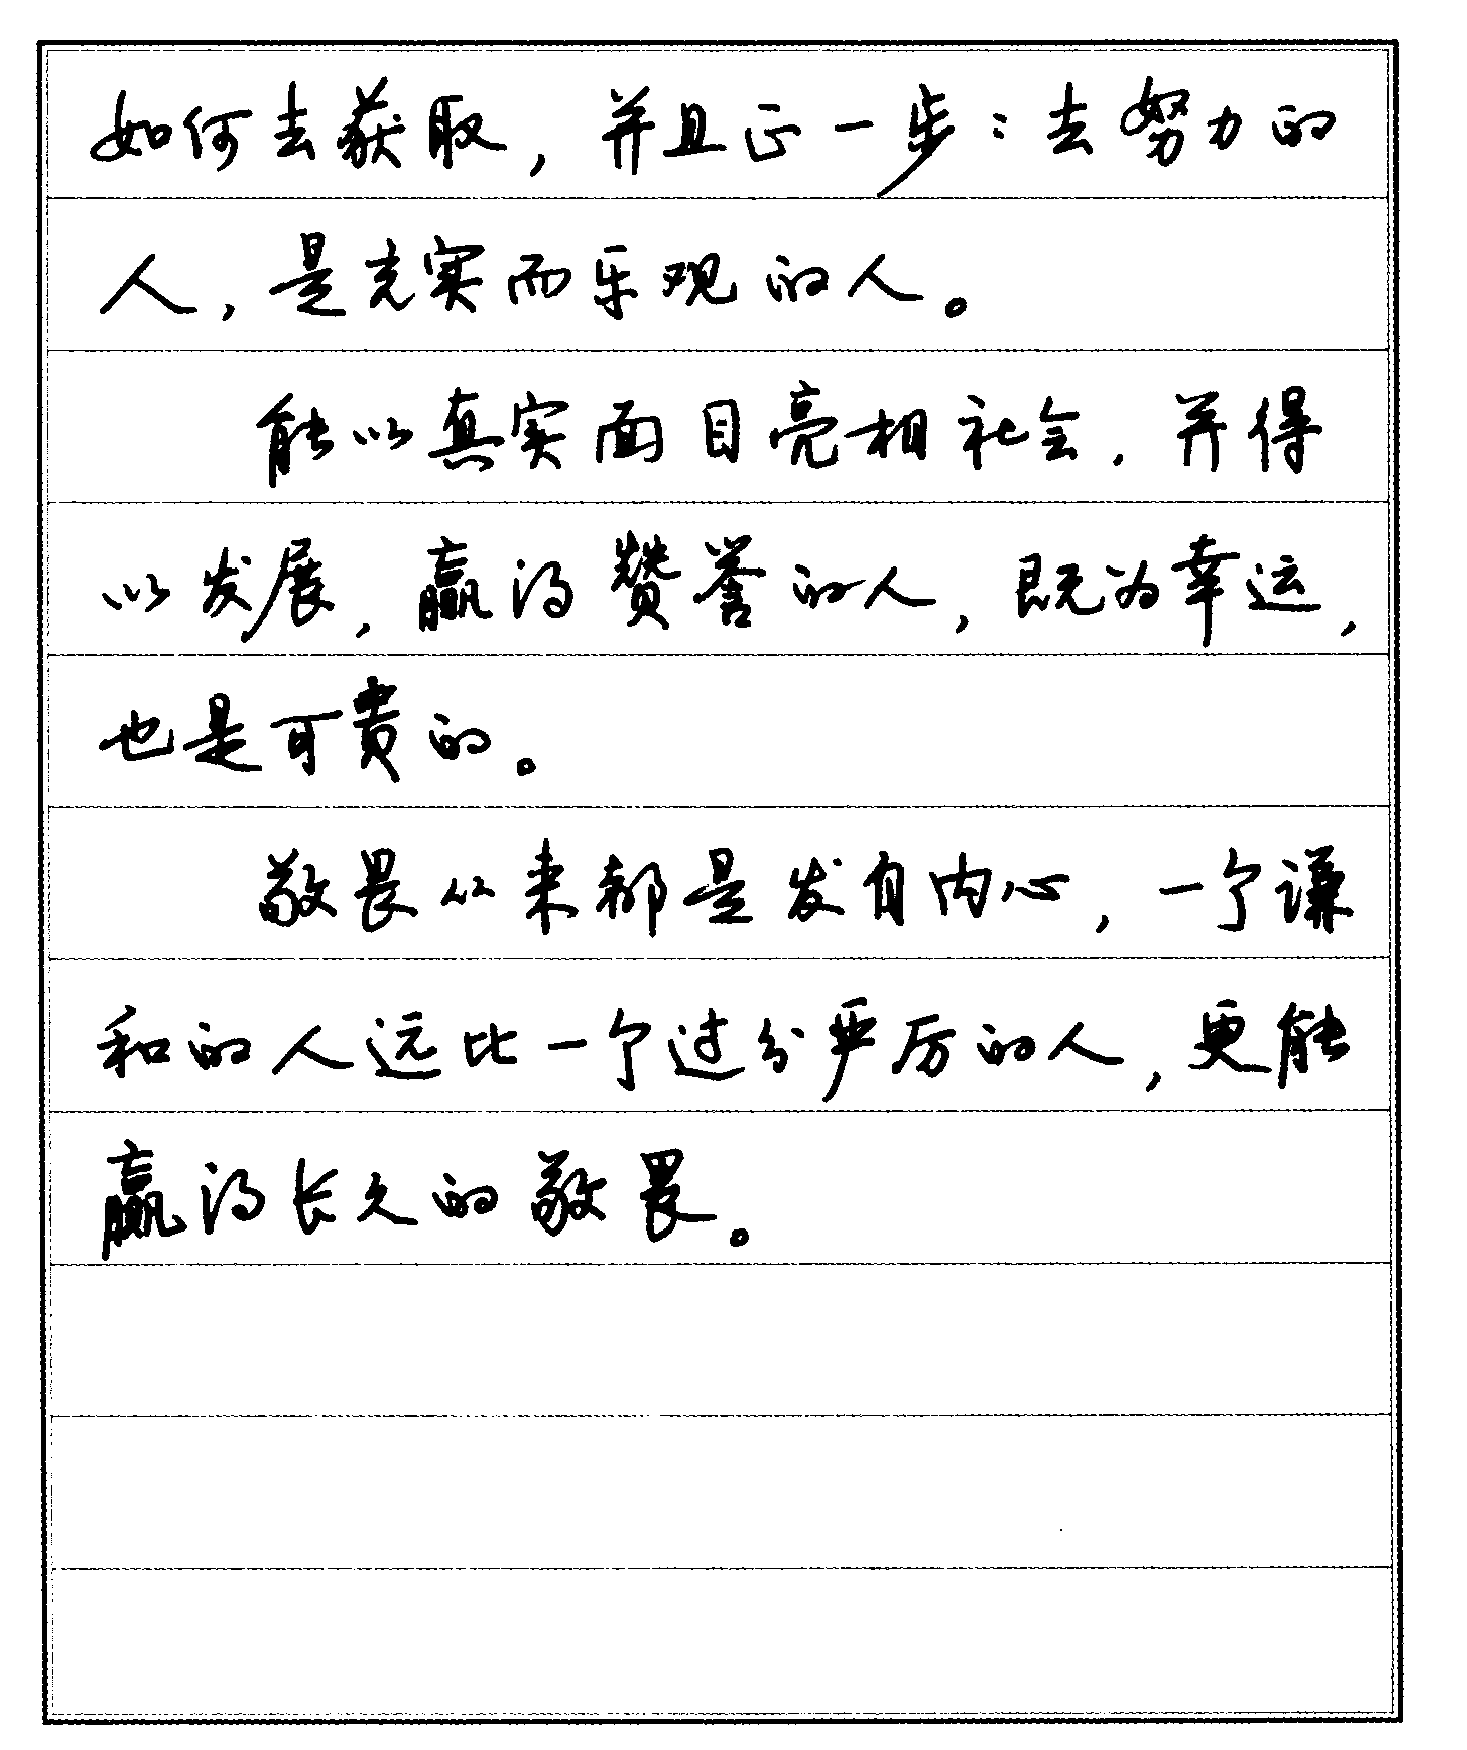 如何去获取，并且正一步：去努力的
人，是充实而乐观的人。
能以真实面目亮相社会，并得
以发展，赢得赞誉的人，既为幸运，
也是可贵的。
敬畏从来都是发自内心，一个谦
和的人远比一个过分严厉的人，更能
赢得长久的敬畏。